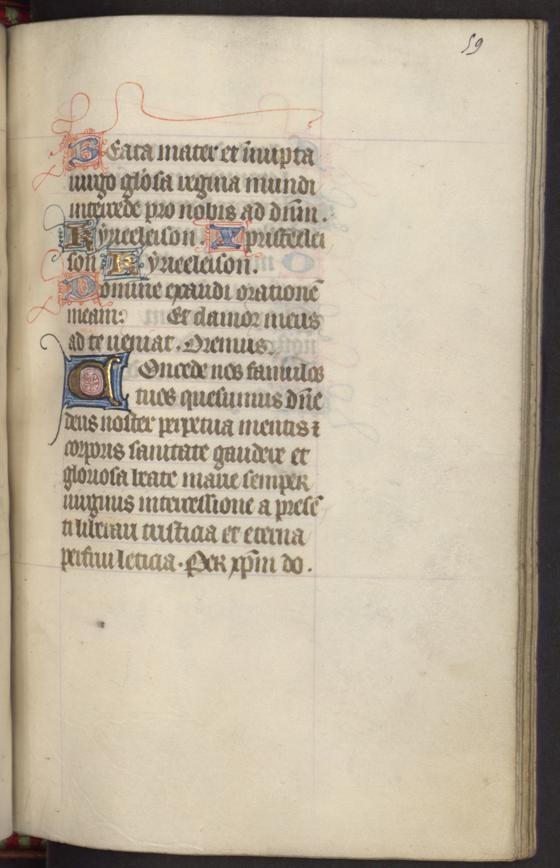 59
Beata mater et ĩnupta
uirgo gl'osa regina mundi
intercede pro nobis ad dñm.
Kyrieeleison. Xpristeelei
son. Kyrieeleison.
Domine exaudi orationē
meam: Et clamor meus
ad te ueniat. Oremus.
Concede nos famulos
tuos quesumus dñe
deus noster perpetua mentis ⁊
corporis sanitate gaudere et
gloriosa beate marie semper
uirginis intercessione a presē
ti liberari tristicia et eterna
perfrui leticia. Per xp̄m do.